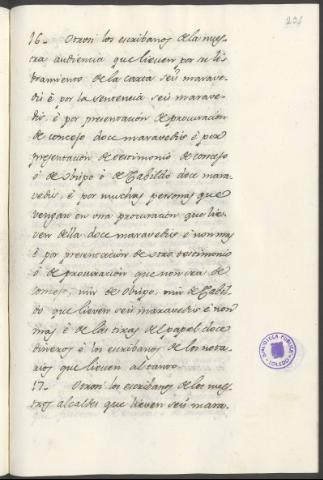 16. Otrosi los escribanos de la nues-
tra audiencia que lieven por su li-
bramiento de la carta seis marave-
dis è por la sentencia seis marave-
dis, è por presentacion de procuracion
de concejo doce maravedis è por
presentacion de testimonio de concejo
ò de Obispo ò de Cabildo doce mara-
vedis, è por muchas personas que
vengan en una procuracion que lie-
ven della doce maravedis è non mas
è por presentacion de otro testimonio
ò de procuracion que non sea de
concejo, nin de Obispo, nin de Cabil-
do que lieven seis maravedis è non
mas è de la tira del papel doce
dineros è los escribanos de los nota-
rios que lieven al tanto.
17. Otrosi los escribanos de los nues-
tros alcaldes que lieven seis mara-
BIBLIOTECA PUBLICA
TOLEDO